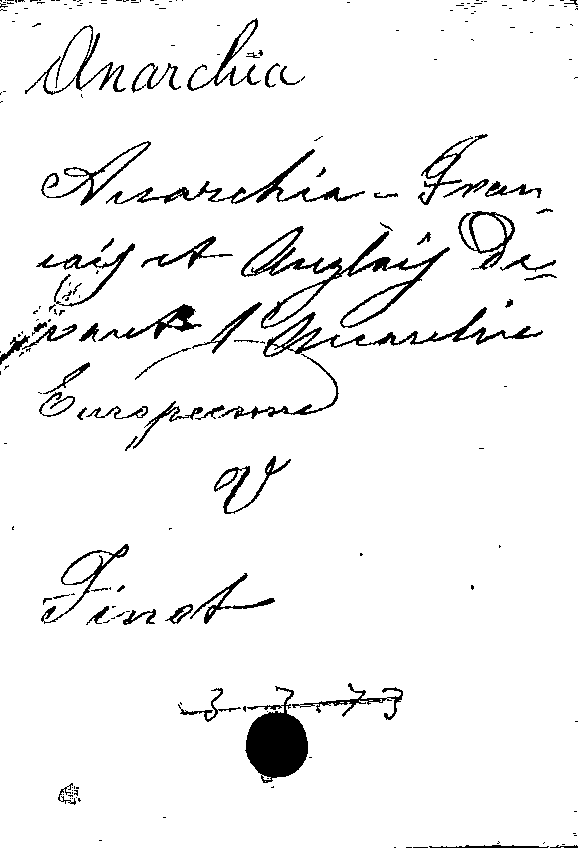 Anarchia
Anarchia - Fran-
cais et Anglais De-
vant l'Anarchie
Européenne
V
Finot
3.7.73